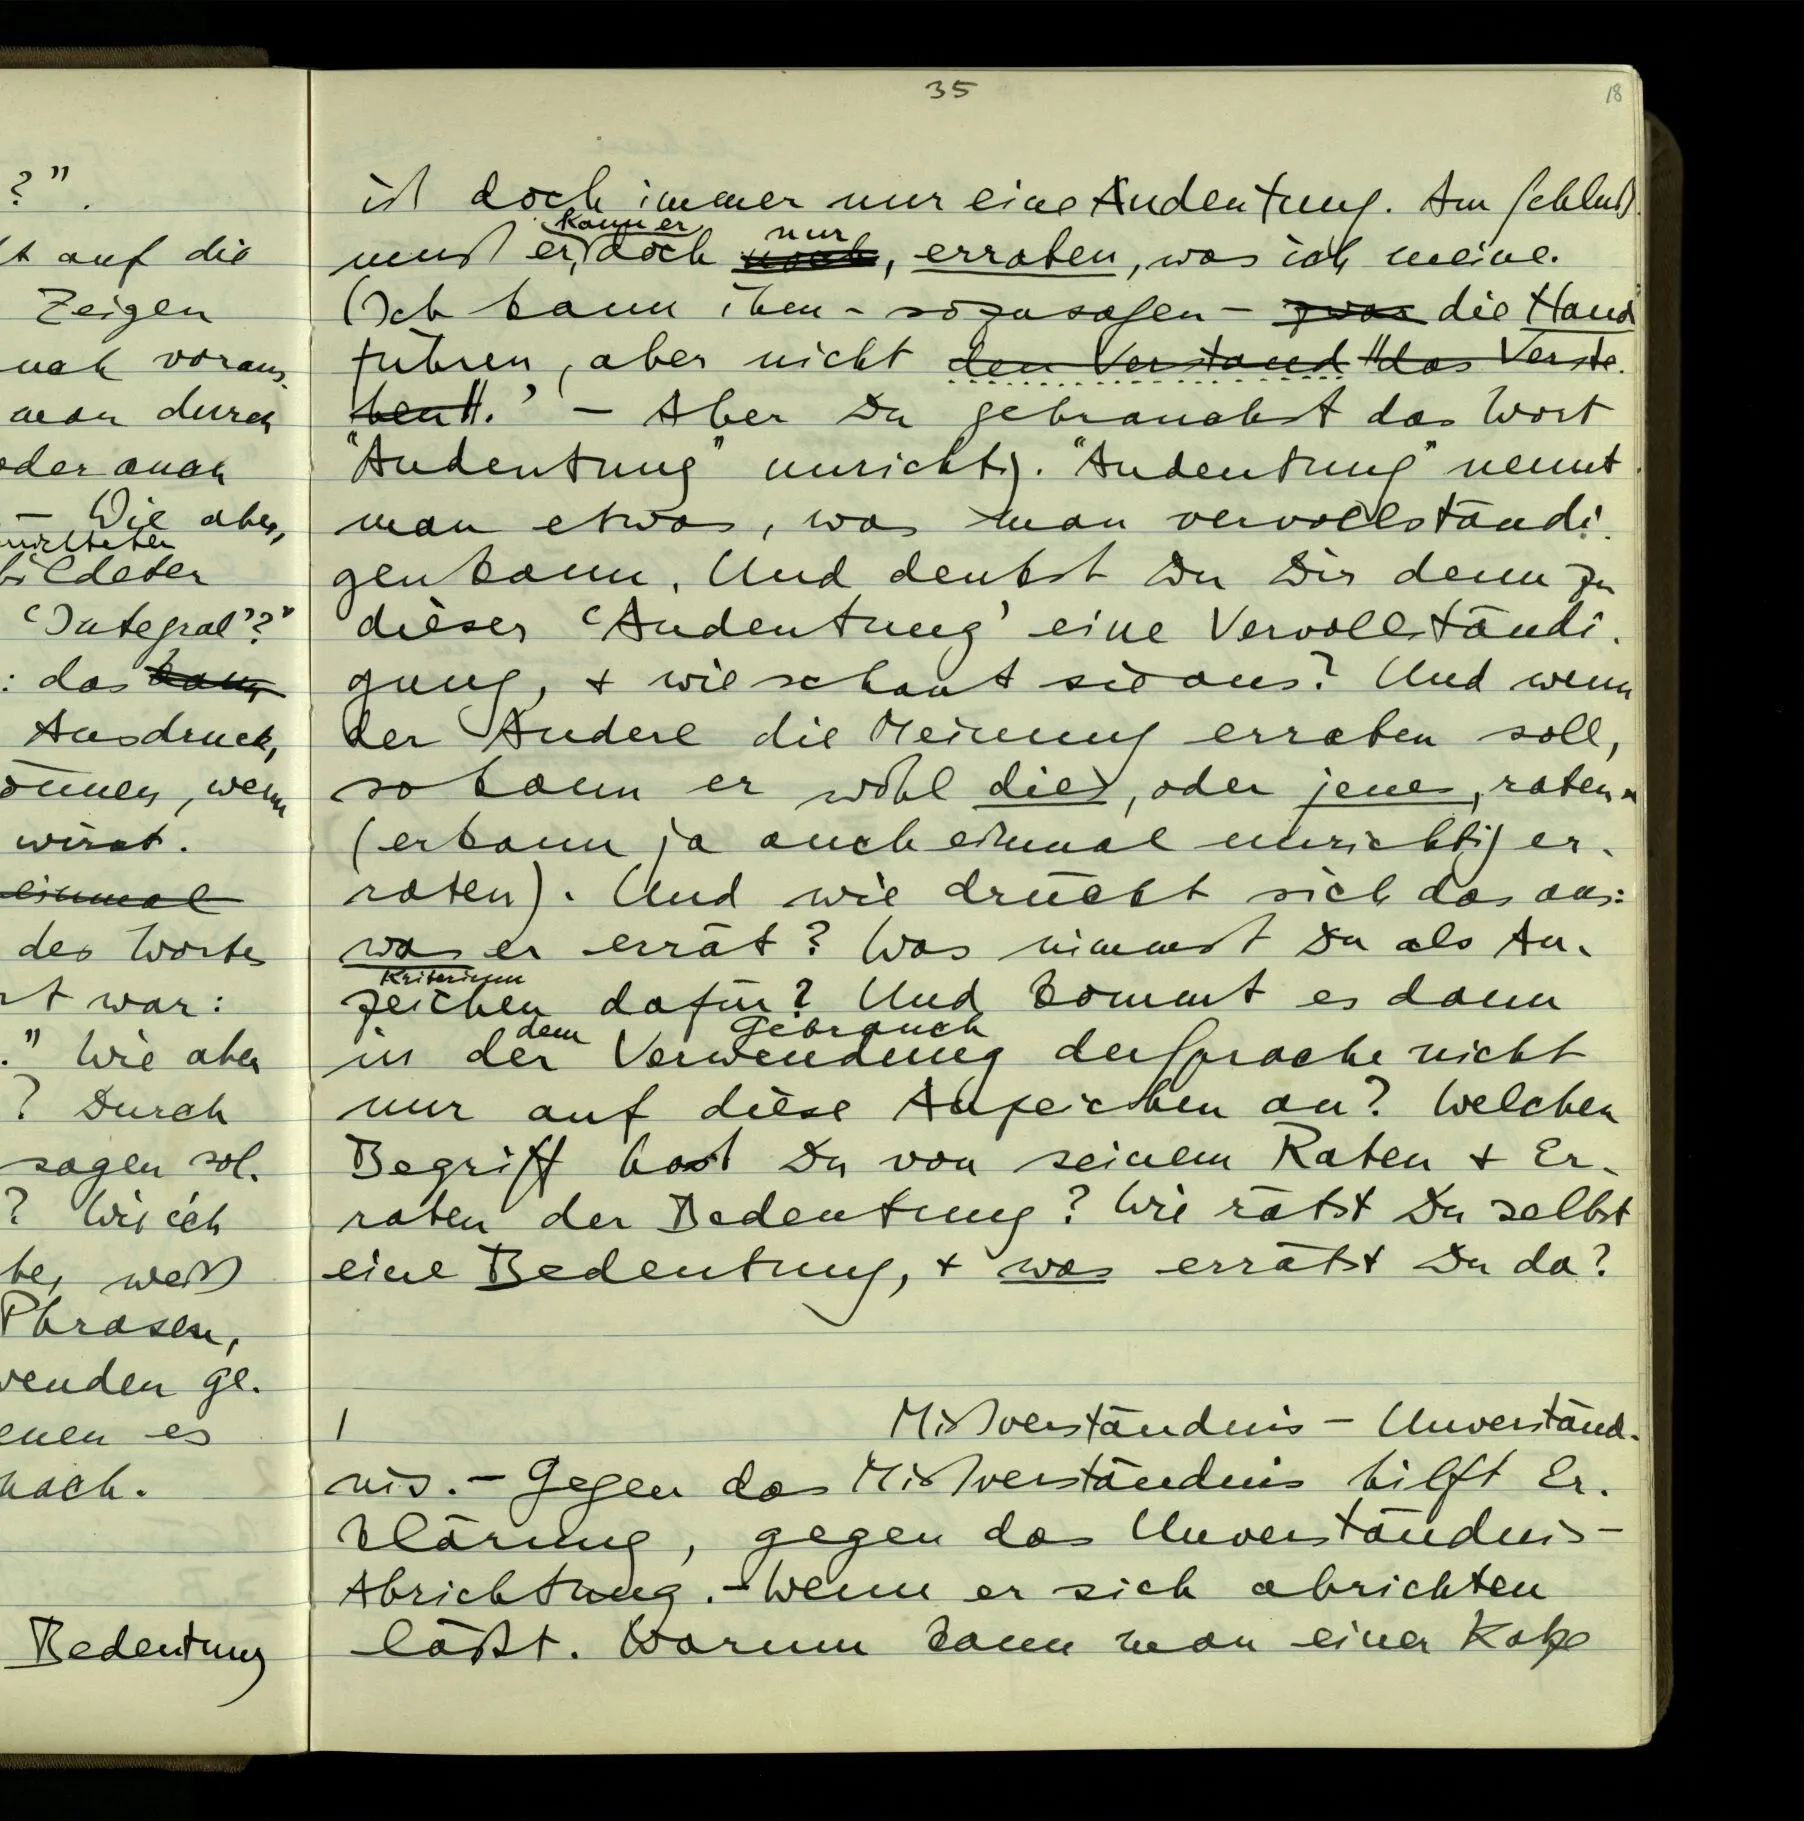 35
18
?".
t auf die
Zeigen
nach voraus-
man durch
oder auch
– Wie aber,
bildeter
‘Integral’?"
: das
Ausdruck,
können, wenn
wirst.
einmal
des Wortes
rt war:
." Wie aber
? Durch
sagen sol-
? Wie ich
be, weiß
Phrasen,
wenden ge-
enen es
nach.
Bedeutung
ist doch immer nur eine Andeutung. Am Schluß
kann er nur
muß er, doch noch, erraten, was ich meine.
(Ich kann ihm – sozusagen – zwar die Hand
führen, aber nicht den Verstand //das Verste-
hen//.’ – Aber Du gebrauchst das Wort
"Andeutung" unrichtig. "Andeutung" nennt
man etwas, was man vervollständi-
gen kann. Und denkst Du Dir denn zu
dieser ‘Andeutung’ eine Vervollständi-
gung, & wie schaut sie aus? Und wenn
der Andere die Meinung erraten soll,
so kann er wohl dies, oder jenes, raten
(er kann ja auch einmal unrichtig er-
raten). Und wie drückt sich das aus:
was er errät? Was nimmst Du als An-
Kriterium
zeichen dafür? Und kommt es dann
dem Gebrauch
in der Verwendung der Sprache nicht
nur auf diese Anzeichen an? Welchen
Begriff hast Du von seinem Raten & Er-
raten der Bedeutung? Wie rätst Du selbst
eine Bedeutung, & was errätst Du da?
/ Mißverständnis – Unverständ-
nis. – Gegen das Mißverständnis hilft Er-
klärung, gegen das Unverständnis –
Abrichtung. – Wenn er sich abrichten
läßt. Warum kann man einer Katze